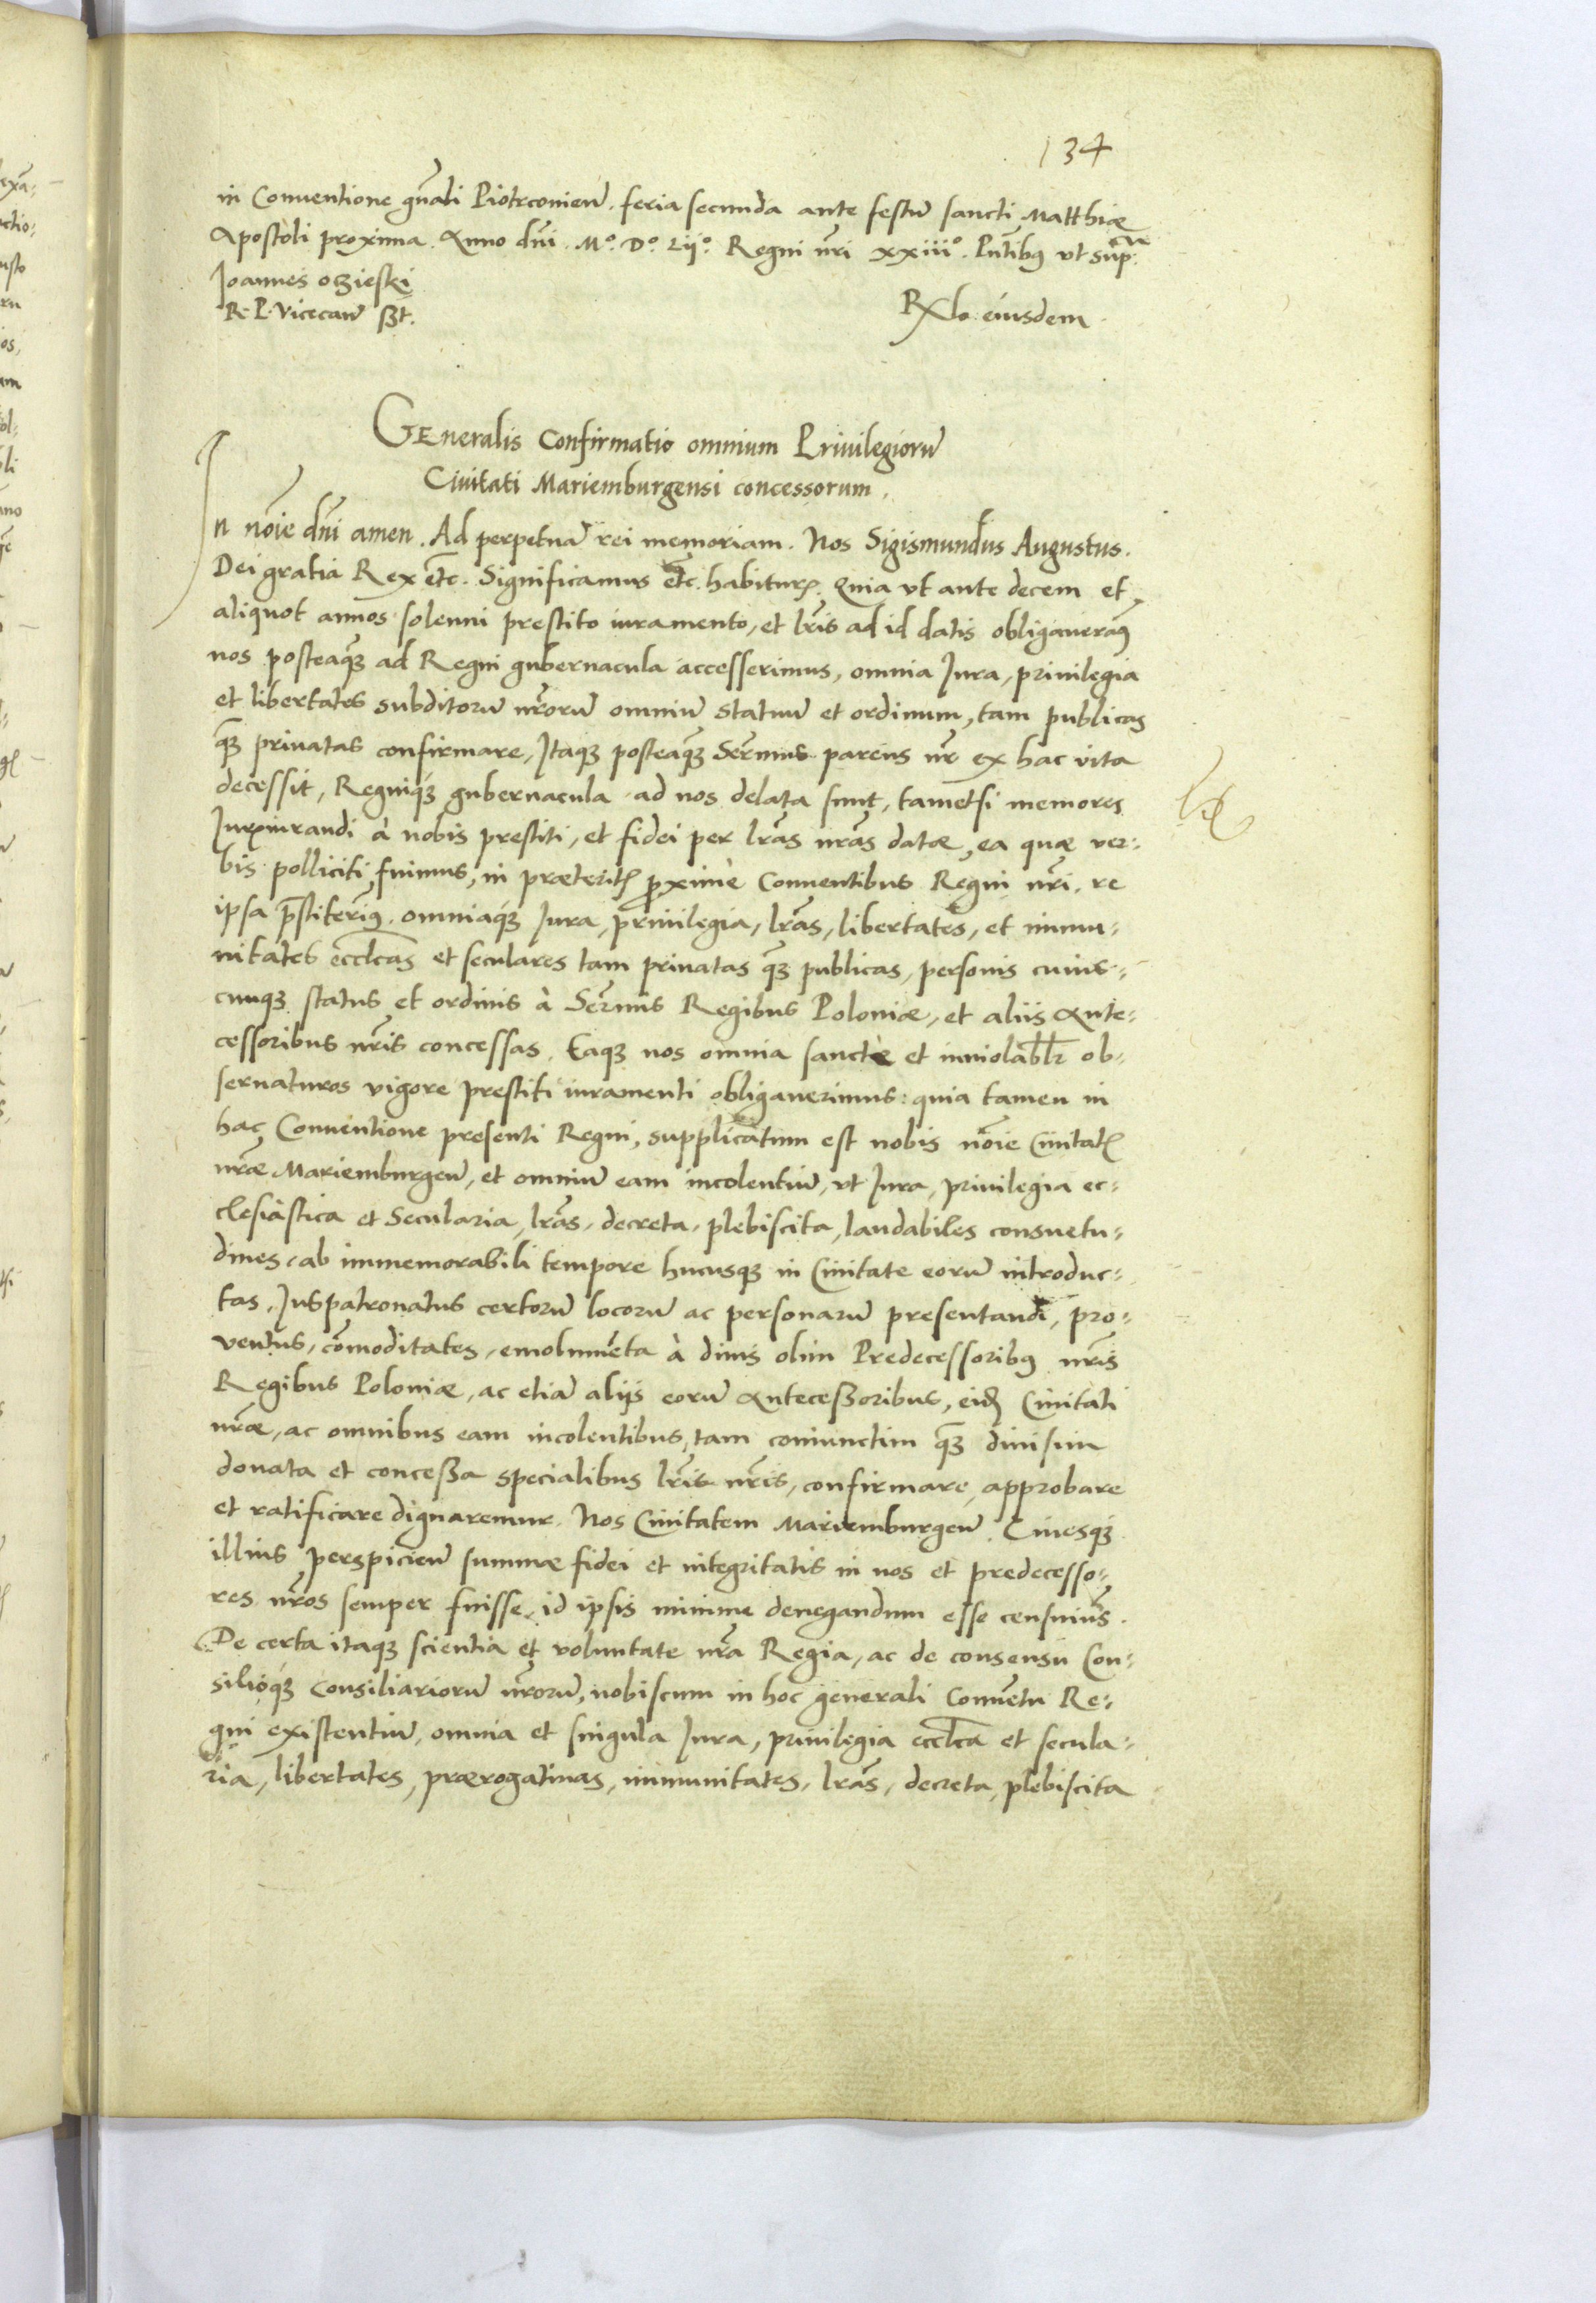 134
in Conuentione gñali Piotrconieñ. feria secunda ante festũ sancti Matthiæ
Apostoli proxima. Anno dñi. Mº. Dº. Lijº. Regni ñri xxiiiº. Pñtibus vt supra.
Joannes oczieski
R. P. Vicecañ sßt.
Rlo eiusdem
GEneralis Confirmatio omnium Priuilegiorũ
Ciuitati Mariemburgensi concessorum.
In nõie dñi amen. Ad perpetuã rei memoriam. Nos Sigismundus Augustus.
Dei gratia Rex etc. Significamus etc. habituris. Quia vt ante decem et
aliquot annos solenni prestito iuramento, et lr̃is ad id datis obligaueramus
nos posteaq̃ ad Regni gubernacula accesserimus, omnia Jura, priuilegia
et libertates subditorũ nr̃orũ omniũ statuũ et ordinum, tam publicas
q̃ priuatas confirmare, Itaqꝫ posteaq̃ Ser̃mus parens nr̃ ex hac vita
decessit, Regniqꝫ gubernacula ad nos delata sunt, tametsi memores
Jurisiurandi à nobis prestiti, et fidei per lr̃as nr̃as datæ, ea quæ ver-
bis polliciti fuimus, in præteritis proximè Conuentibus Regni nr̃i, re
ipsa p̃stiterimus. omniaqꝫ Jura, priuilegia, lr̃as, libertates, et immu-
nitates eccl̃cas et seculares tam priuatas q̃ publicas, personis cuius-
cunqꝫ status et ordinis à Ser̃mis Regibus Poloniæ, et aliis Ante-
cessoribus nr̃is concessas. Eaqꝫ nos omnia sanctè et inuiolabl̃r ob-
seruaturos vigore prestiti iuramenti obligauerimus: quia tamen in
hac Conuentione presenti Regni, supplicatum est nobis nõie Ciuitatis
nr̃æ Mariemburgeñ, et omniũ eam incolentiũ, vt Jura, priuilegia ec-
clesiastica et Secularia, lr̃as, decreta, plebiscita, laudabiles consuetu-
dines, ab immemorabili tempore hucusqꝫ in Ciuitate eorũ introduc-
tas, Juspatronatus certorũ locorũ ac personarũ presentandi, pro-
ventus, cõmoditates, emolumẽta à diuis olim Predecessoribus nr̃is
Regibus Poloniæ, ac etiã aliis eorũ Antecessoribus, eidẽ Ciuitati
nr̃æ, ac omnibus eam incolentibus, tam coniunctim q̃ diuisim
donata et concessa specialibus lr̃is nr̃is, confirmare, approbare
et ratificare dignaremur. Nos Ciuitatem Mariemburgeñ. Ciuesqꝫ
illius perspicieñ summæ fidei et integritatis in nos et predecesso-
res nr̃os semper fuisse, id ipsis minime denegandum esse censuim̃s.
De certa itaqꝫ scientia et voluntate nr̃a Regia, ac de consensu Con-
silioqꝫ Consiliariorũ nr̃orũ, nobiscum in hoc generali Conuẽtu Re-
gni existentiũ, omnia et singula Jura, priuilegia eccl̃ca et secula-
ria, libertates, prærogatiuas, immunitates, lr̃as, decreta, plebiscita